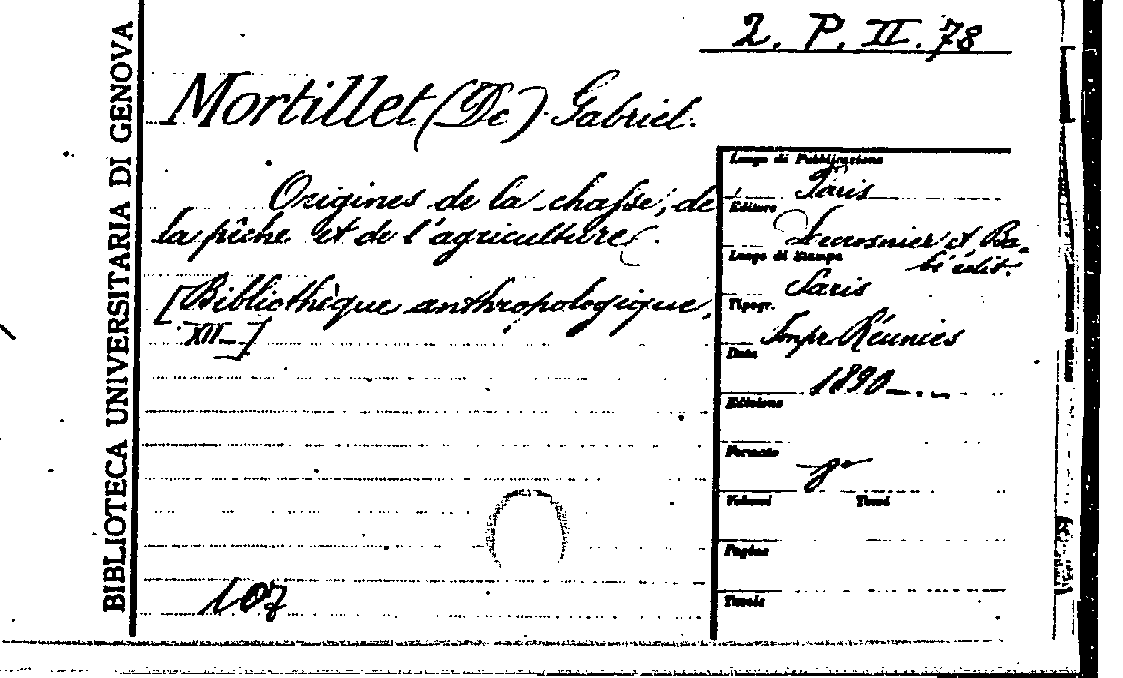 2. P. II. 78
BIBLIOTECA UNIVERSITARIA DI GENOVA
Mortillet (De) Gabriel.
Origines de la chasse, de
la pêche et de l'agriculture.
[Bibliothèque anthropologique,
XII—]
107
Luogo di Pubblicazione
Paris
Editore
Lecrosnier et Ba-
bé édit.
Luogo di Stampa
Paris
Tipogr.
Impr. Réunies
Data
1890
Edizione
Formato
8°
Volumi Tomi
Pagine
Tavole